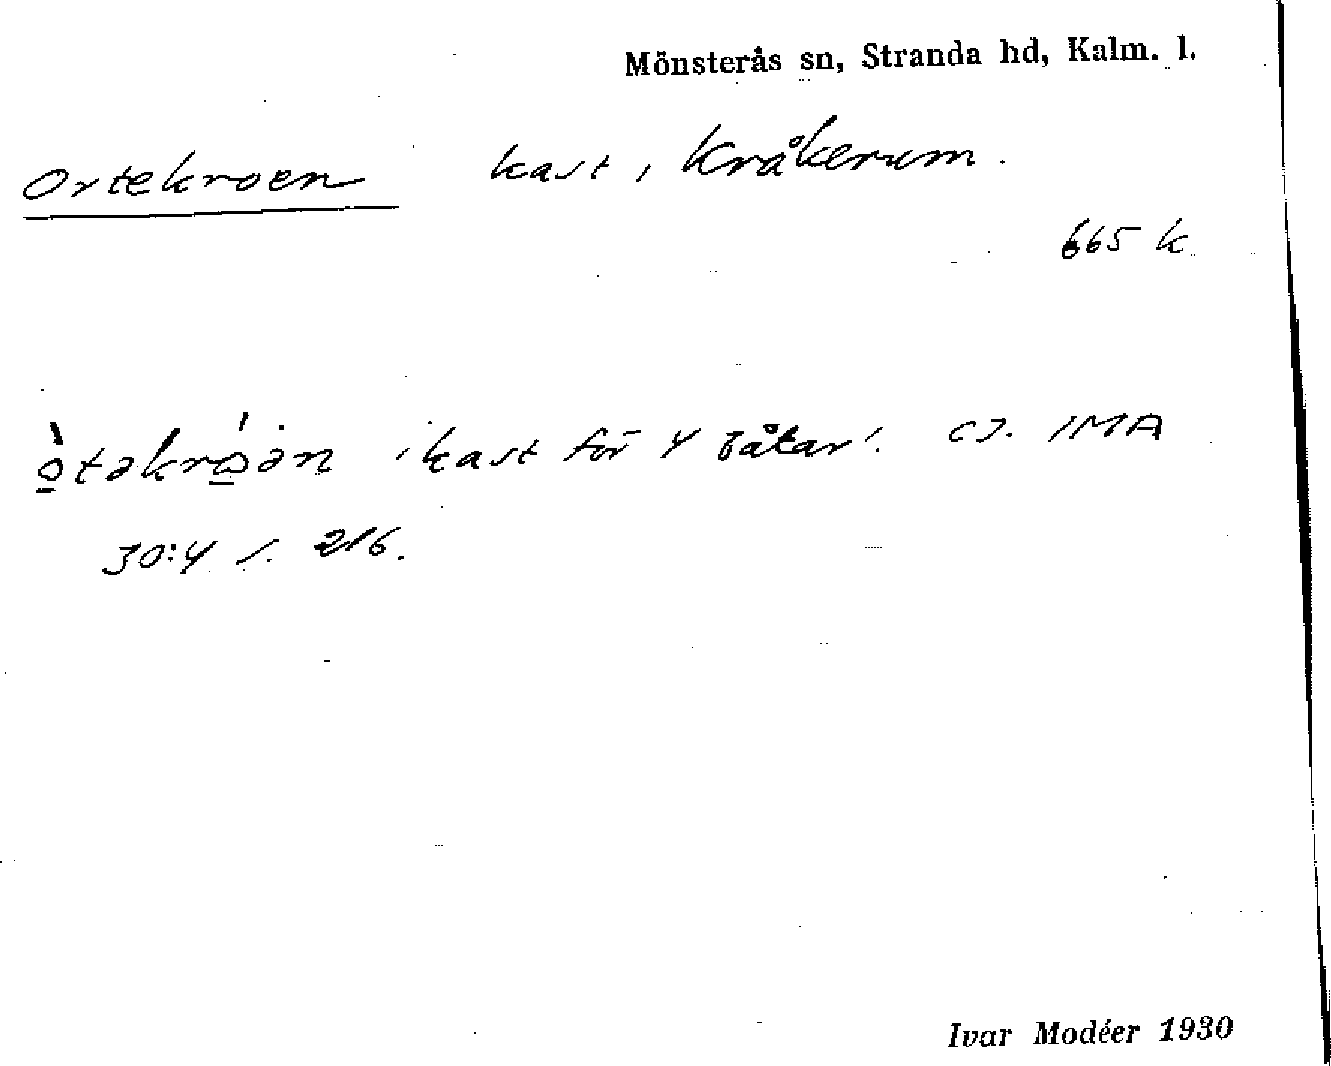 Mönsterås sn, Stranda hd, Kalm. l.
Ortekroen kast, Kråkerum.
665 k
òtəkro̠ən 'kast för 4 båtar'. CJ. IMA
30:4 s. 216.
Ivar Modéer 1930